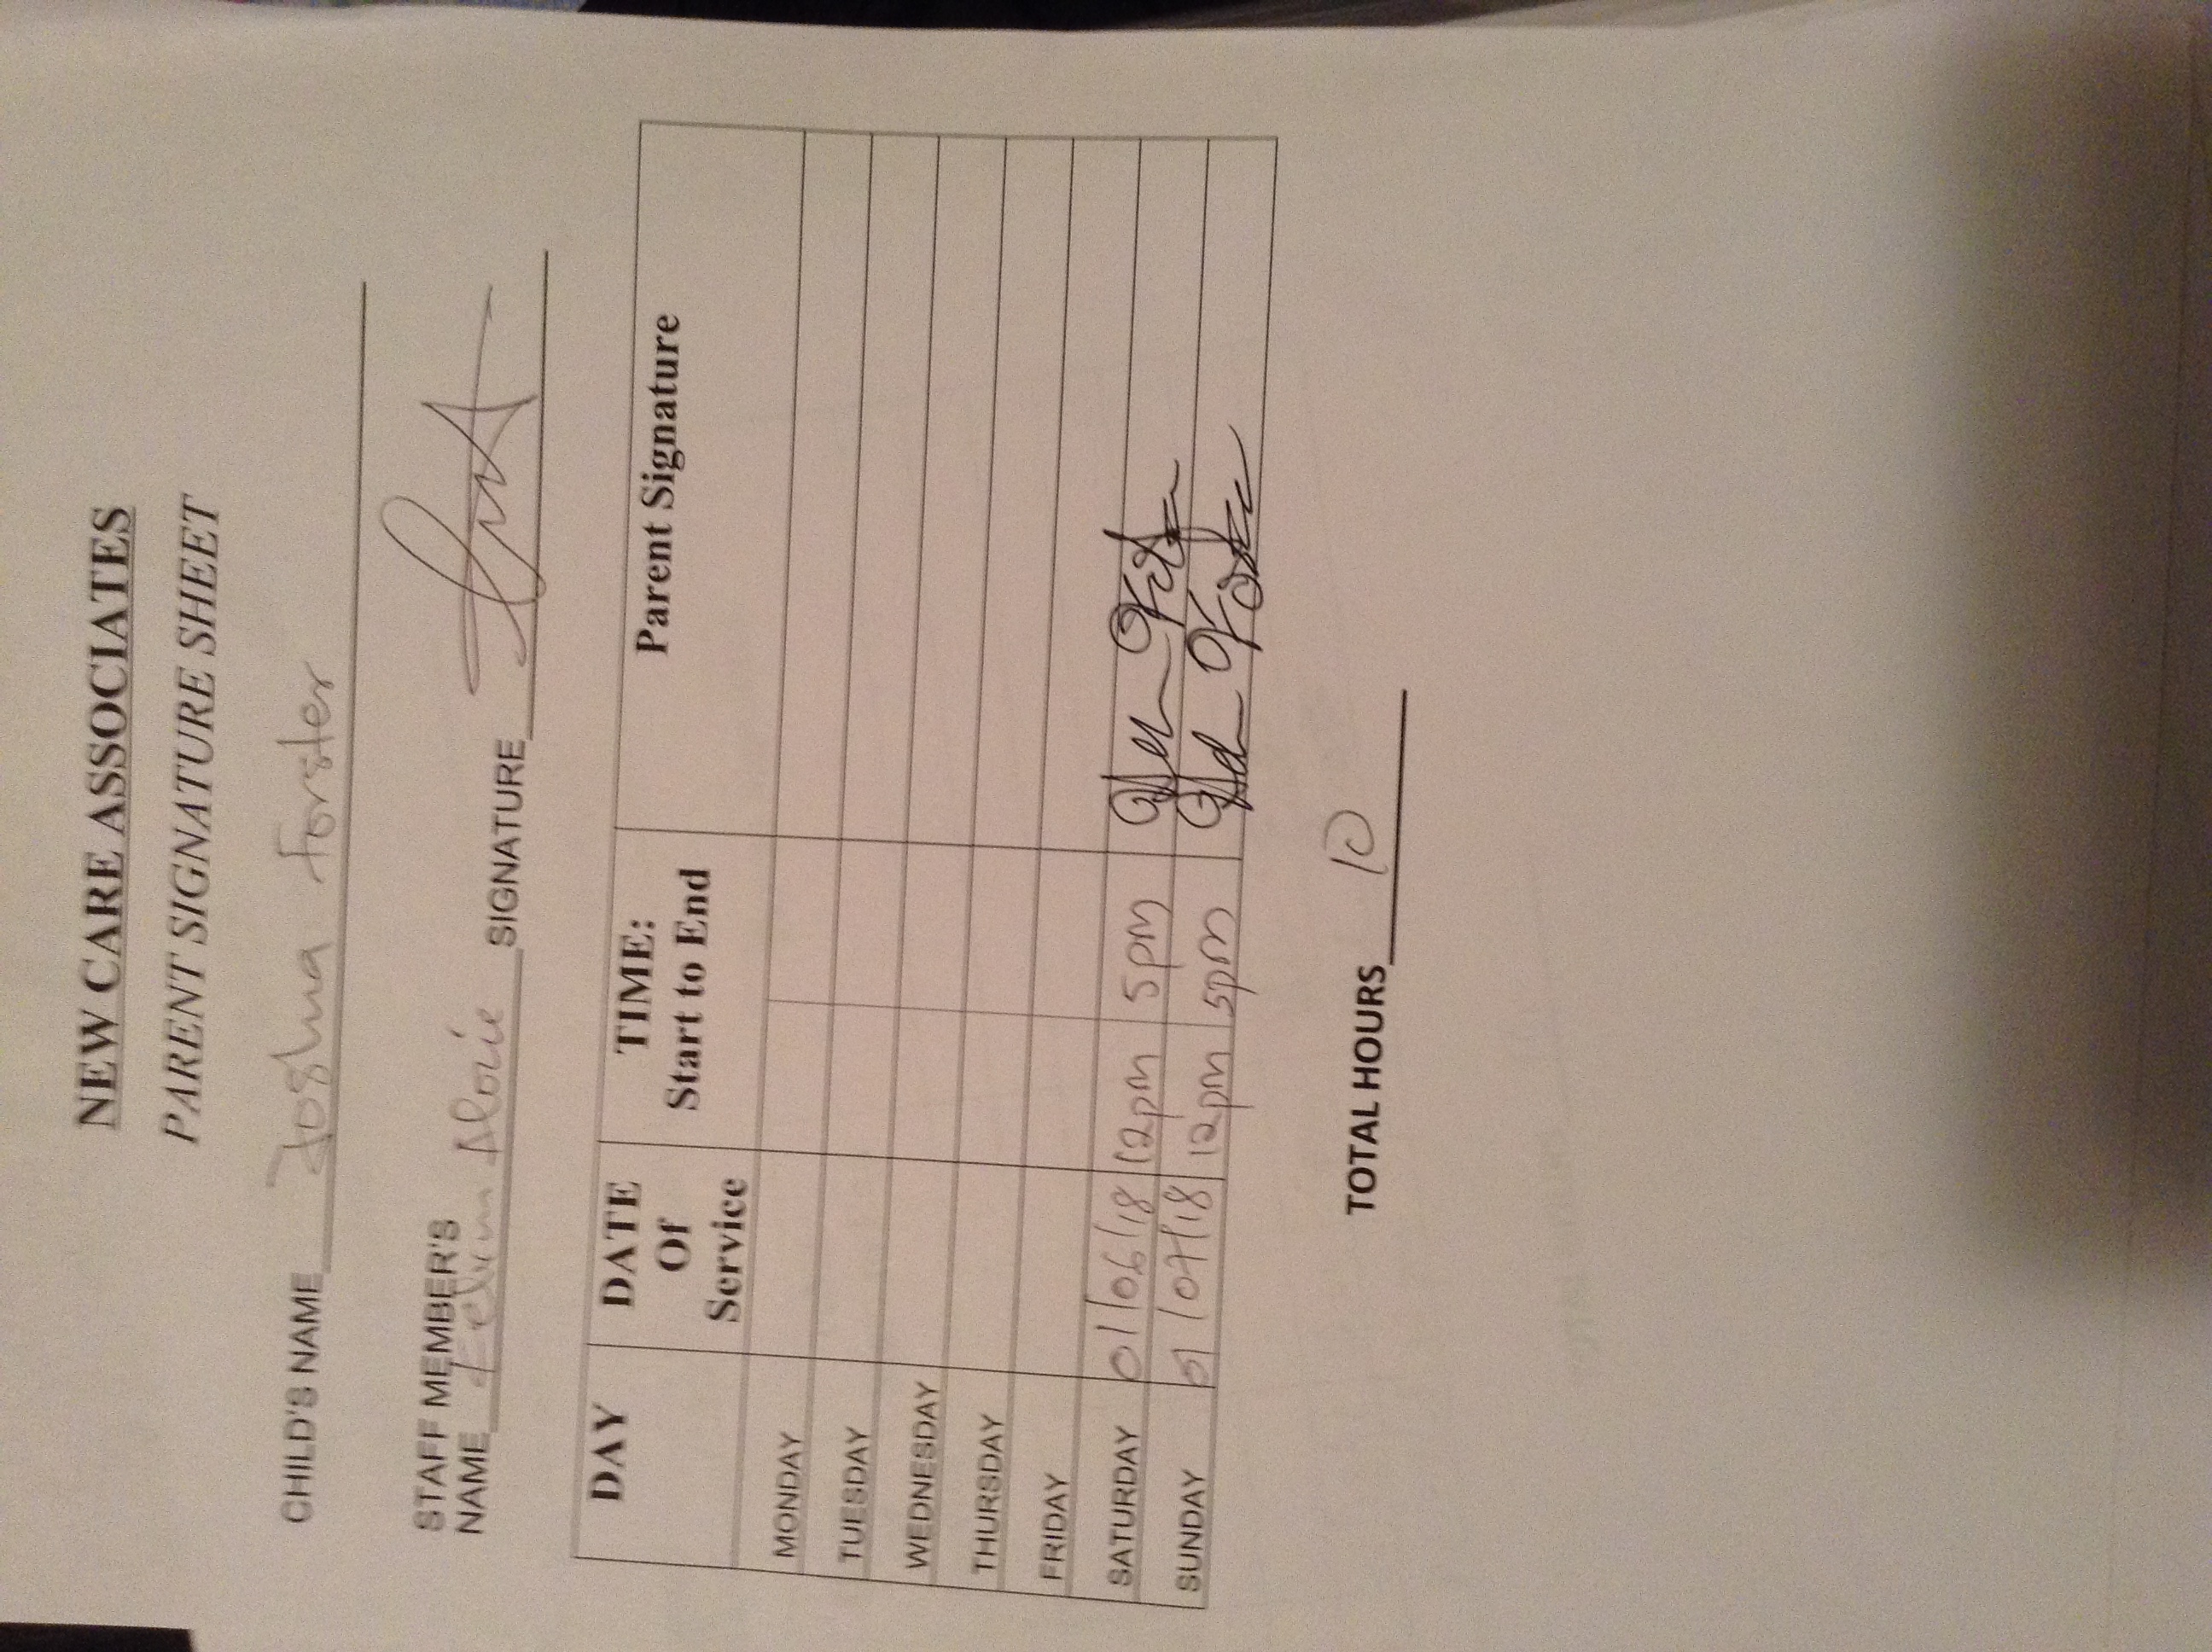 NEW CARE ASSOCIATES
PARENT SIGNATURE SHEET
CHILD'S NAME Joshua Forster
STAFF MEMBER'S
NAME SIGNATURE
DAY DATE Of Service TIME: Start to End Parent Signature
MONDAY
TUESDAY
WEDNESDAY
THURSDAY
FRIDAY
SATURDAY 01/06/18 12pm 5pm
SUNDAY 01/07/18 12pm 5pm
TOTAL HOURS 10